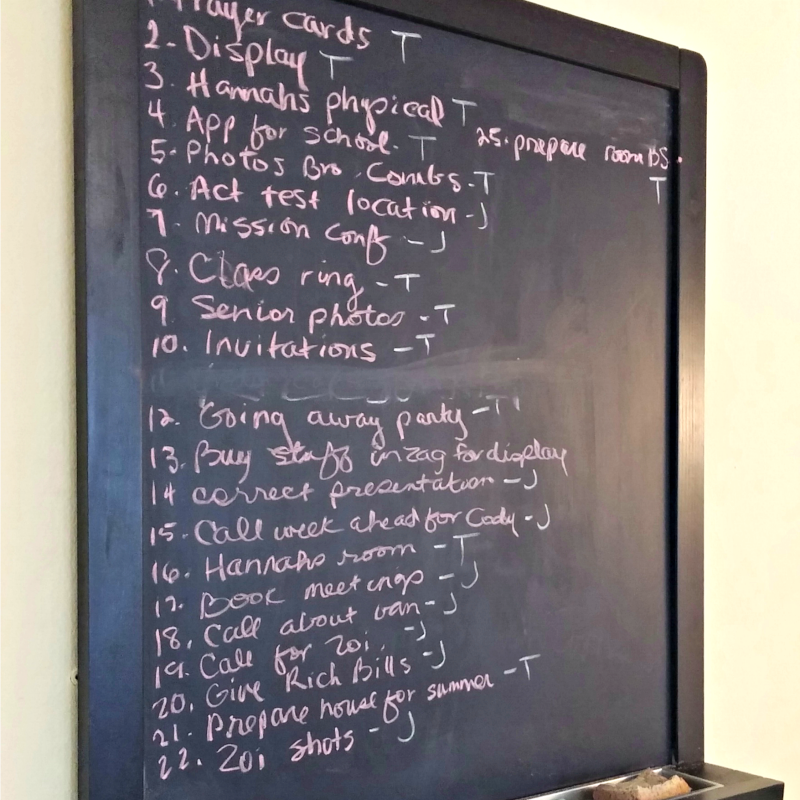 1. Prayer cards T
2. Display T
3. Hannahs physical T
4. App for school. T
5. Photos Bro. Combs - T
6. Act test location - J
7. Mission Conf - J
8. Class ring - T
9. Senior photos - T
10. Invitations - T
12. Going away party - T
13. Buy stuff in zag for display
14 correct presentation - J
15. Call week ahead for Cody - J
16. Hannahs room - T
17. Book meetings - J
18. Call about van - J
19. Call for Zoi. - J
20. Give Rich Bills - J
21. Prepare house for summer - T
22. Zoi shots - J
25. prepare room BS.
T